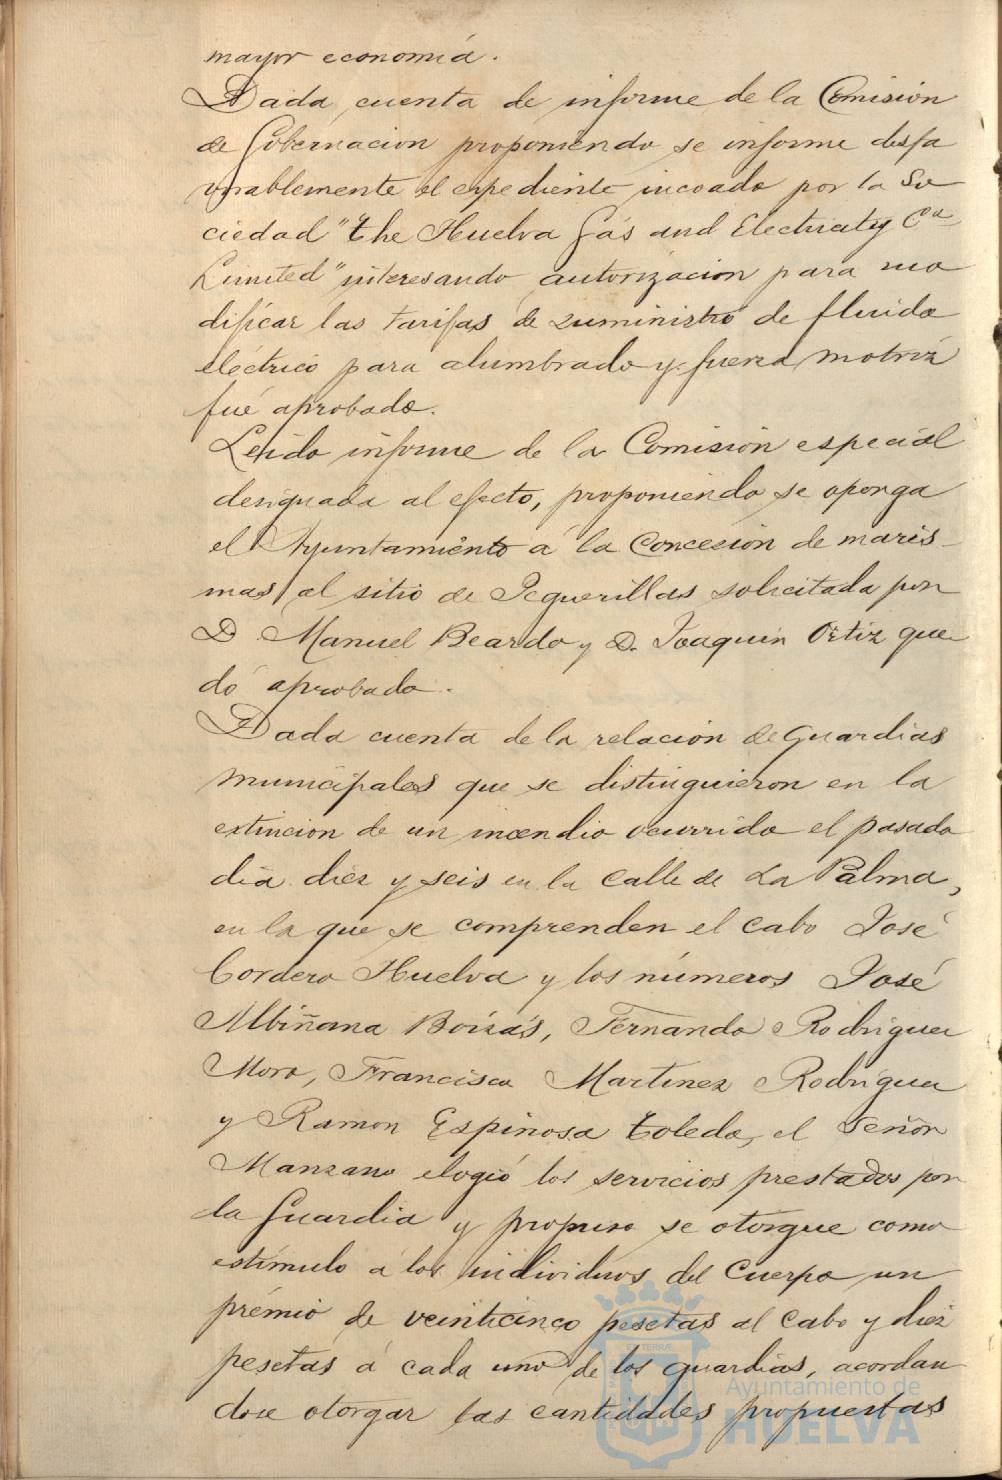 mayor economía.
Dada cuenta de informe de la Comisión
de Gobernacion proponiendo se informe desfa
vorablemente el expediente incoado por la So
ciedad "The Huelva Gás and Electricity Cª
Limited" interesando autorizacion para mo
dificar las tarifas de suministro de fluido
eléctrico para alumbrado y fuerza motriz
fué aprobado.
Leido informe de la Comisión especial
designada al efecto, proponiendo se oponga
el Ayuntamiento á la Concesion de maris-
mas al sitio de Peguerillas solicitada por
D. Manuel Beardo y D. Joaquin Ortiz que
dó aprobado.
Dada cuenta de la relacion de Guardias
municipales que se distinguieron en la
extincion de un incendio ocurrido el pasado
dia diez y seis en la calle de La Palma,
en la que se comprenden el cabo José
Cordero Huelva y los números José
Albiñana Boizás, Fernando Rodriguez
Moro, Francisco Martinez Rodriguez
y Ramon Espinosa Toledo, el Señor
Manzano elogió los servicios prestados por
la Guardia y propuso se otorgue como
estímulo á los individuos del Cuerpo un
prémio de veinticinco pesetas al Cabo y diez
pesetas á cada uno de los guardias, acordan
dose otorgar las cantidades propuestas
Ayuntamiento de
HUELVA